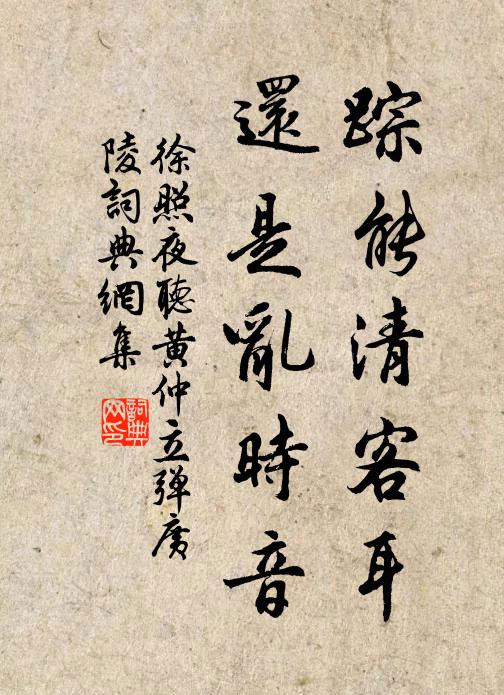 踪能清客耳
還是亂時音
徐照夜聽黃仲立彈廣
陵詞典網集
詞典
网印